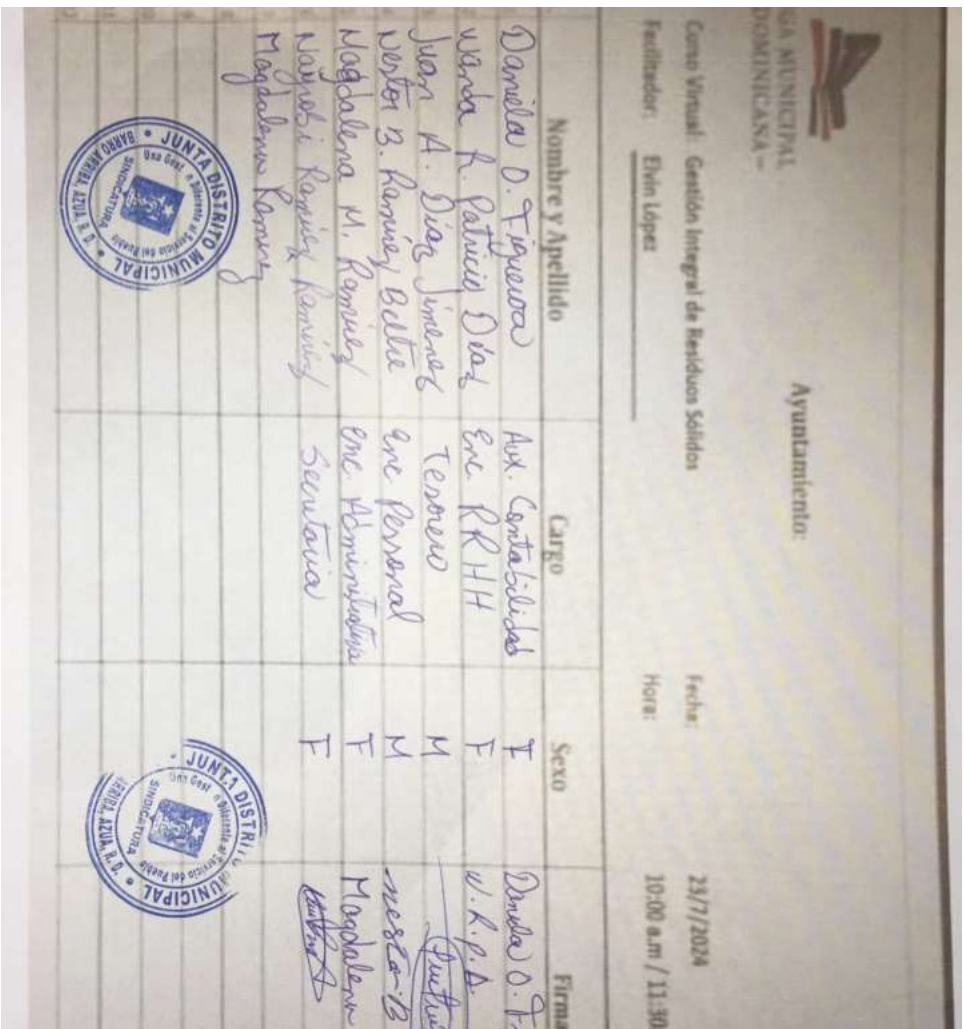 GA MUNICIPAL
DOMINICANA –
Ayuntamiento:
Curso Virtual: Gestión Integral de Residuos Sólidos Fecha: 23/7/2024
Facilitador: Elvin López Hora: 10:00 a.m / 11:30
Nombre y Apellido Cargo Sexo Firma
Daniela O. Figuereo Aux. Contabilidad F Daniela O. F
Wanda R. Patricio Díaz Enc. RRHH F W.R.P.D.
Juan A. Díaz Jimenez Tesorero M
Nestor B. Ramirez Beltre Enc Personal M nestor B
Magdalena M. Ramirez Enc. Administrativa F Magdalena
Nayrobi Ramirez Ramirez Secretaria F
Magdalena Ramirez
8
9
10
11
12
JUNTA DISTRITO MUNICIPAL
Una Gest n Diferente al Servicio del Pueblo
SINDICATURA
BARRO ARRIBA, AZUA, R. D.
JUNTA DISTRI MUNICIPAL
Una Gest n Diferente al Servicio del Pueblo
SINDICATURA
ARRIBA, AZUA, R. D.